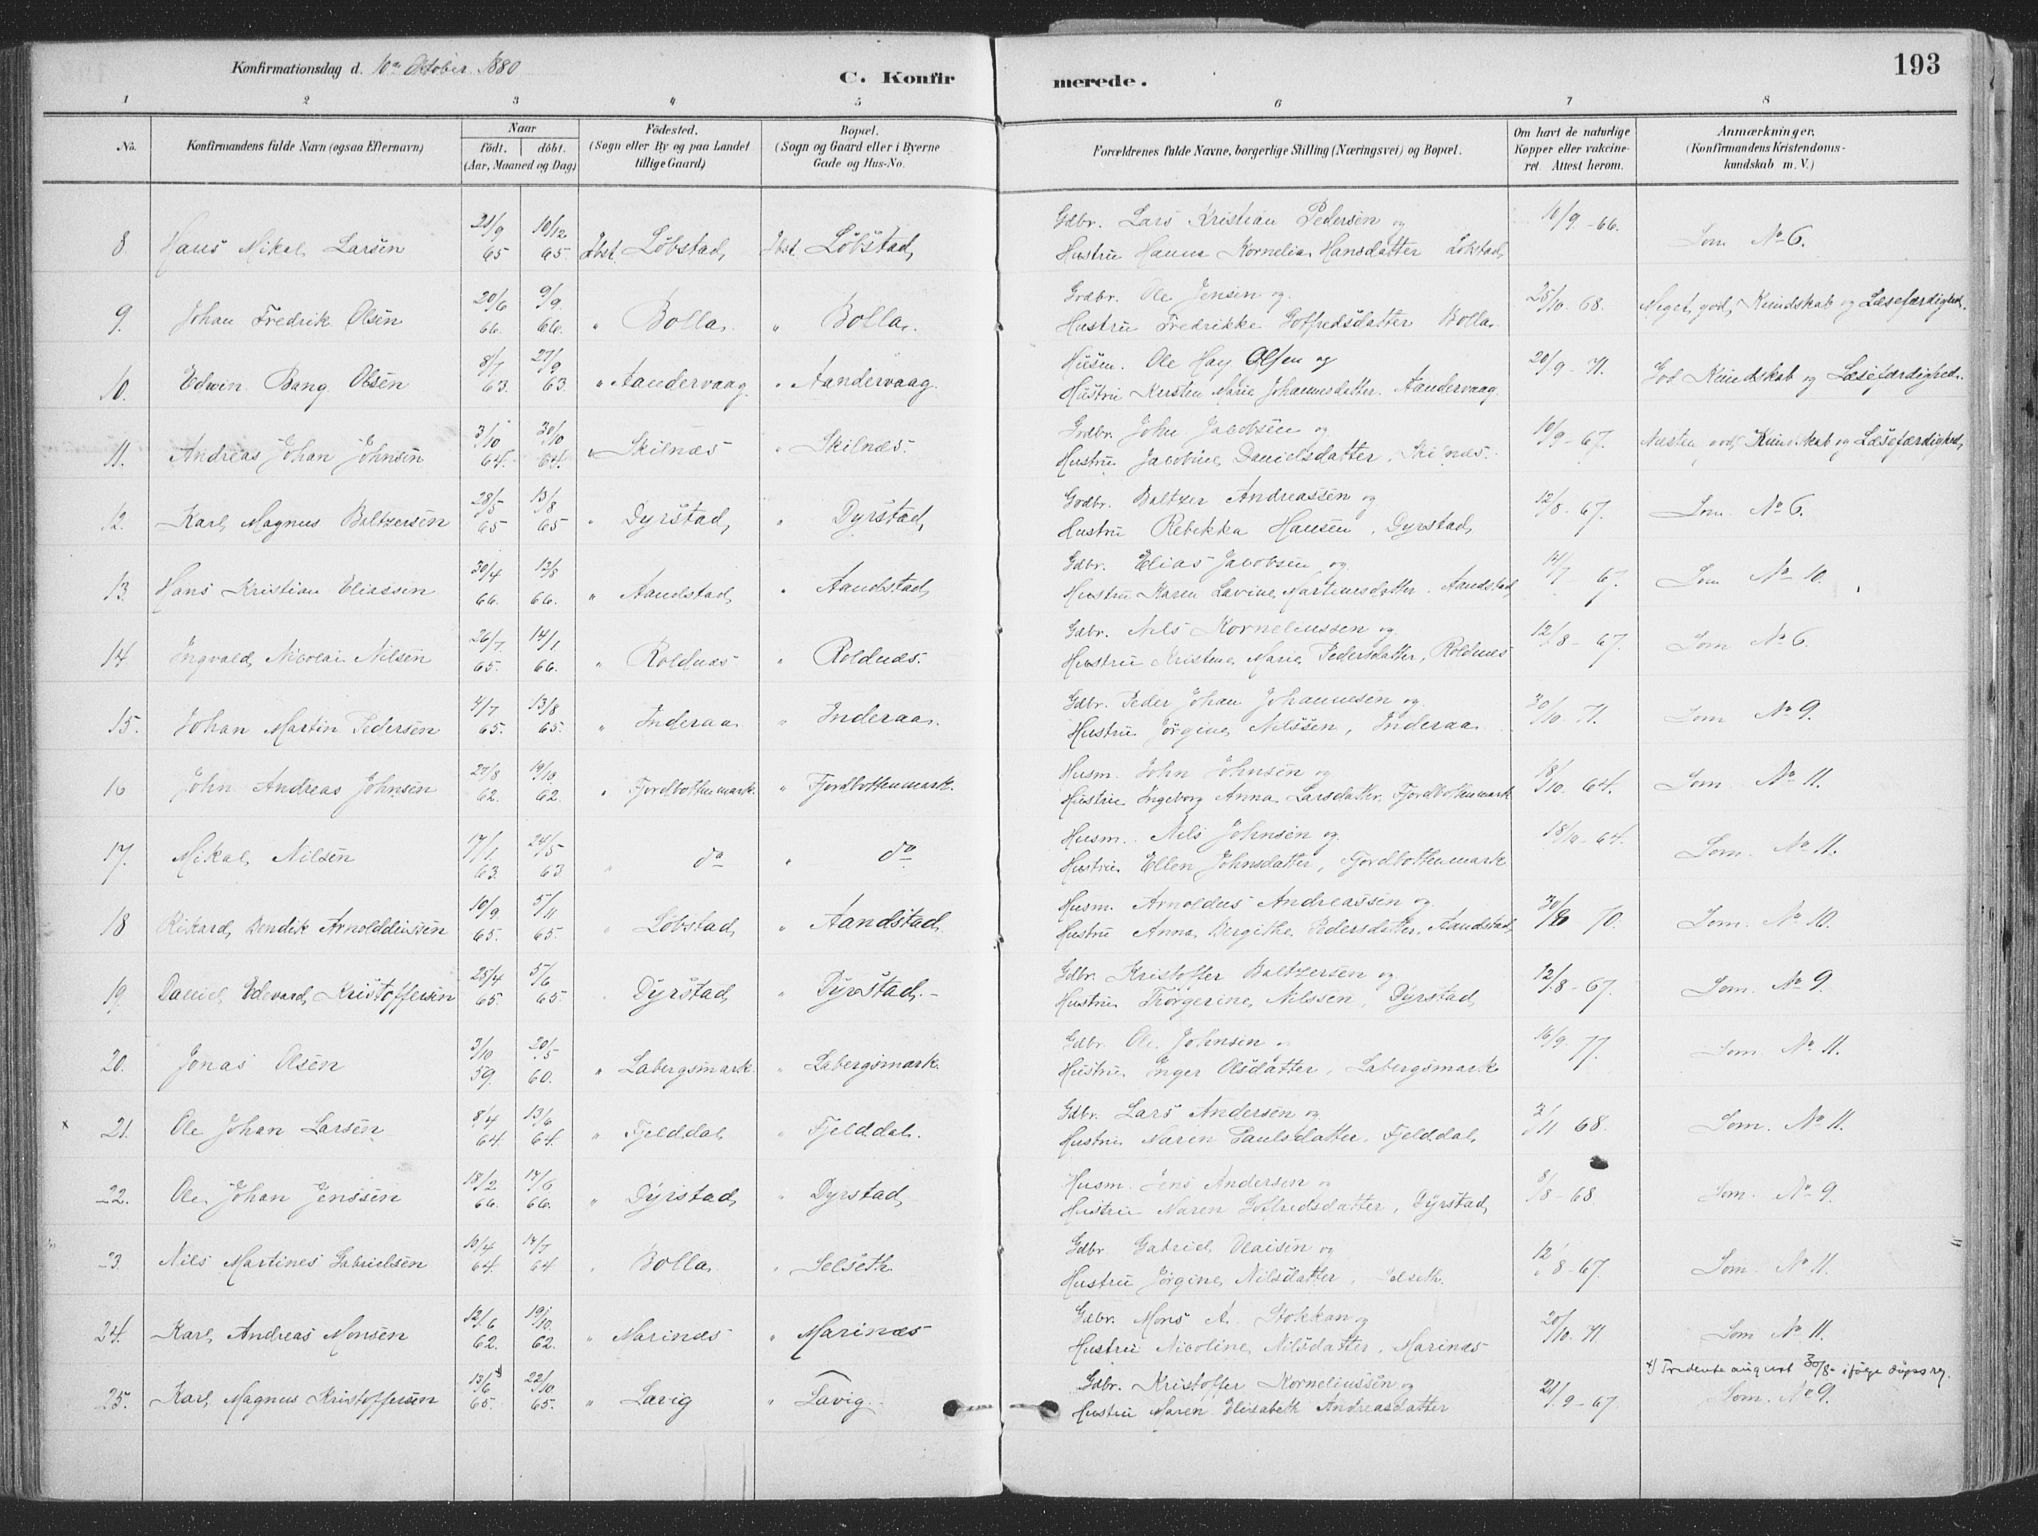 193
Konfirmationsdag d. 10de Oktober 1880
C. Konfirmerede.
1 2 3 4 5 6 7 8
No. Konfirmandens fulde Navn (ogsaa Efternavn) Naar födt. döbt. (Aar, Maaned og Dag) Födested. (Sogn eller By og paa Landet tillige Gaard) Bopæl. (Sogn og Gaard eller i Byerne Gade og Hus-No. Forældrenes fulde Navne, borgerlige Stilling (Næringsvei) og Bopæl. Om havt de naturlige Kopper eller vakcineret. Attest herom. Anmærkninger. (Konfirmandens Kristendomskundskab m. V.)
8. Hans Mikal Larsen 21/9 65 10/12 65 Ibst. Löbstad Ibst. Löbstad Gdbr. Lars Kristian Pedersen og Hustru Hanna Kornelia Hansdatter Löbstad 10/9 - 66. Som No 6.
9. Johan Fredrik Olsen 20/6 66. 9/9 66. " Bolla. " Bolla. Grdbr. Ole Jensen og Hustru Fredrikke Gotfredsdatter Bolla. 25/10. 68. Meget god Kundskab og Læsefærdighed.
10. Edwin Bang Olsen 8/7 63. 27/9 63. " Aandervaag. " Aandervaag. Husm. Ole Hay Olsen og Hustru Kersten Marie Johannesdatter. Aandervaag. 20/9 - 71. God Kundskab og Læsefærdighed.
11. Andreas Johan Johnsen 3/10 64. 30/10 64. " Skilnæs " Skilnæs. Grdbr. John Jacobsen og Hustru Jacobine Danielsdatter. Skilnæs. 10/9 - 67. Næsten god Kundskab og Læsefærdighed.
12. Karl Magnus Baltzersen 28/5 65 13/8 65 " Dyrstad " Dyrstad, Gdbr. Baltzer Andreassen og Hustru Rebekka Hansen, Dyrstad, 12/8 - 67. Som No 6.
13. Hans Kristian Eliassen 30/4 66. 12/8 66. " Aandstad " Aandstad Gdbr. Elias Jacobsen og Hustru Karen Lavine Martinusdatter. Aandstad 14/7 67. Som No 10.
14. Ingvald Nicolai Nilsen 26/7 65. 14/1 66. " Roldnæs " Roldnæs. Gdbr. Nils Korneliussen og Hustru Kristine Marie Pedersdatter, Roldnæs 12/8 - 67. Som No 6.
15. Johan Martin Pedersen 4/7 65. 13/8 65. " Inderaa " Inderaa. Gdbr. Peder Johan Johannesen og Hustru Jörgine Nilssen, Inderaa 30/10. 71. Som No 9.
16 John Andreas Johnsen 27/8 62. 19/10 62. " Fjordbottenmark. " Fjordbottenmark. Husm. John Johnsen og Hustru Ingeborg Anna Larsdatter. Fjordbottenmark 18/10. 64. Som No 11.
17. Mikal Nilsen 17/1. 63. 24/5 63 " do " do Husm. Nils Johnsen og Hustru Ellen Johnsdatter, Fjordbottenmark - 64. Som. No 11.
18 Rikard Bendik Arnolddeussen 10/9 65. 5/11 65. " Löbstad " Aandstad Husm. Arnoldus Andreassen og Hustru Anna Birgithe Pedersdatter. Aandstad - 70. Som No. 10.
19. Daniel Edevard Kristoffersen 25/4 65. 5/6 65 " Dyrstad " Dyrstad. Gdbr. Kristoffer Baltzersen og Hustru Nilssen, Dyrstad 12/8 - 67. Som. No 9.
20. Jonas Olsen 3/10 59. 20/5 60. " Labergsmark. " Labergsmark. Gdbr. Ole Johnsen og Hustru Inger Olsdatter, Labergsmark 16/9. 77. Som. No 11.
x 21. Ole Johan Larsen 8/4 64. 13/6 64. " Fjelddal " Fjelddal. Gdbr. Lars Andersen og Hustru Maren Paulsdatter, Fjelddal. 3/11 68. Som. No 11.
22. Ole Johan Jenssen 18/2 66. 17/6 66. " Dyrstad " Dyrstad Husm. Jens Andersen og Hustru Maren Gotfredsdatter, Dyrstad 8/8 - 68 Som. No 9.
23. Nils Martines Gabrielsen 13/4 64. 17/7 64 " Bolla " Selseth. Gdbr. Gabriel Olaisen og Hustru Jörgine Nilsdatter. Selseth. 12/8 - 67. Som. No 11.
24. Karl Andreas Monsen 12/6 62. 19/10. 62. " Marinæs " Marinæs Gdbr. Mons A. Stokkan og Hustru Nicoline Nilsdatter, Marinæs 20/10. 71 Som No 11.
25. Karl Magnus Kristoffersen 13/6 65. 22/10. 65. " Lavig " Lavig. Gdbr. Kristoffer Korneliussen og Hustru Maren Elisabeth Andreasdatter 21/9 - 67. Som. No 9.
august 30/8 - ifølge